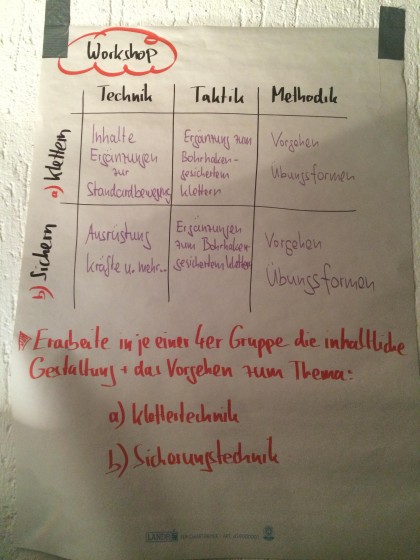 Workshop
Technik Taktik Methodik
a) Klettern
Inhalte
Ergänzungen
zur
Standardbewegung
Ergänzung zum
Bohrhaken-
gesichertem
klettern
Vorgehen
Übungsformen
b) Sichern
Ausrüstung
kräfte u. mehr...
Ergänzungen
zum Bohrhaken-
gesichertem klettern
Vorgehen
Übungsformen
Erarbeite in je einer 4er Gruppe die inhaltliche
Gestaltung + das Vorgehen zum Thema:
a) Klettertechnik
b) Sicherungstechnik